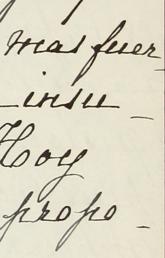 mas fuer
insu-
Hoy
propo-